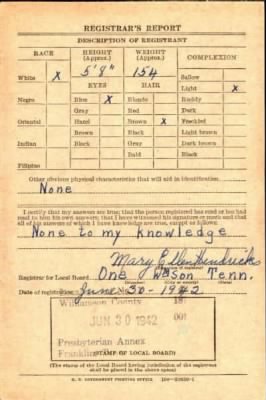 REGISTRAR'S REPORT
DESCRIPTION OF REGISTRANT
RACE HEIGHT (Approx.) WEIGHT (Approx.) COMPLEXION
White X 5' 8" 154 Sallow
EYES HAIR Light X
Negro Blue X Blonde Ruddy
Gray Red Dark
Oriental Hazel Brown X Freckled
Brown Black Light brown
Indian Black Gray Dark brown
Bald Black
Filipino
Other obvious physical characteristics that will aid in identification
None
I certify that my answers are true; that the person registered has read or has had
read to him his own answers; that I have witnessed his signature or mark and that
all of his answers of which I have knowledge are true, except as follows:
None to my knowledge
Mary E. Hendricks
Registrar for Local Board One Tenn.
Date of registration June 30-1942
Williamson County 187
JUN 30 1942 001
Presbyterian Annex
Franklin
(STAMP OF LOCAL BOARD)
(The stamp of the Local Board having jurisdiction of the registrant
shall be placed in the above space)
U. S. GOVERNMENT PRINTING OFFICE